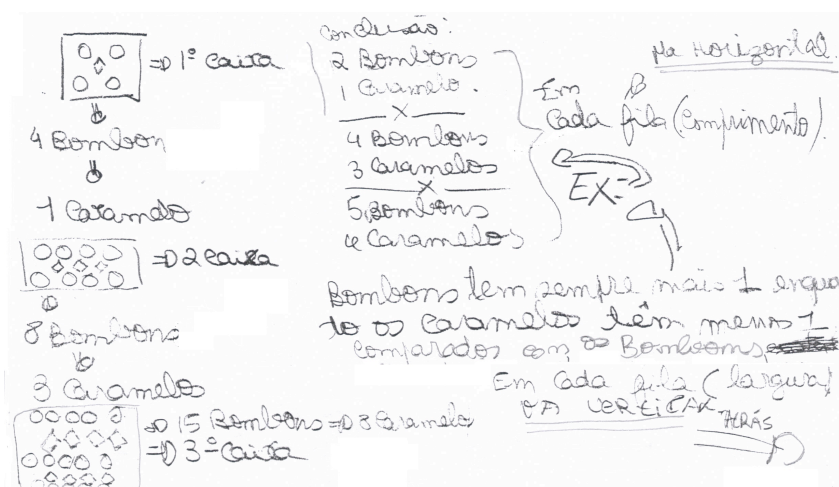 ⇒ 1ª Caixa
4 Bombon
1 Caramelo
⇒ 2 Caixa
8 Bombons
3 Caramelos
⇒ 15 Bombons ⇒ 8 Caramelos
⇒ 3ª Caixa
Conclusão:
2 Bombons
1 Caramelo.
X
4 Bombons
3 Caramelos
X
5 Bombons
4 Caramelos
Na Horizontal.
Em
Cada fila (Comprimento).
EX:
Bombons tem sempre mais 1 enqua
to os Caramelos têm menos 1
Comparados com os Bomboons
Em Cada fila (largura)
NA VERTICAL
ATRÁS